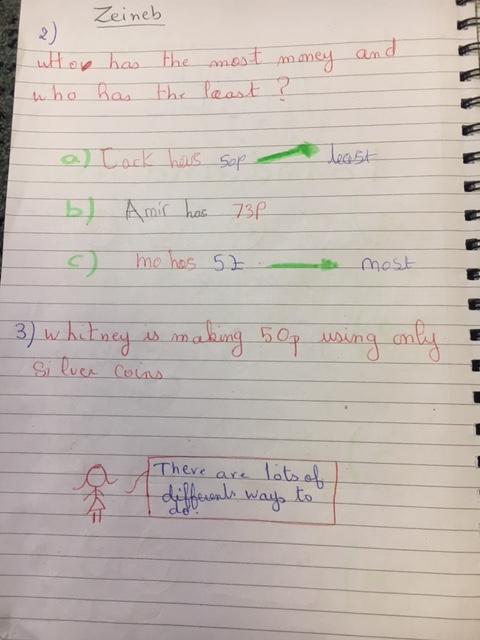 Zeineb
2)
who has the most money and
who has the least ?
a) Jack has 50p least
b) Amir has 73P
c) mo has 5£ most
3) whitney is making 50p using only
silver coins
There are lots of
differents ways to
do.